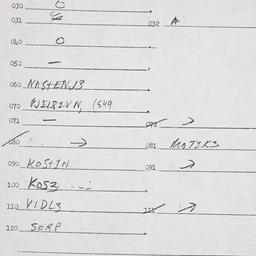 030 O
031
032 A
040 O
050 —
060 NASTENJ3
070 (549
071 —
072 →
080 →
081 MOTIK3
090 KOSTIN
091 →
100 KOS3
110 VIDL3
111 →
120 SERP